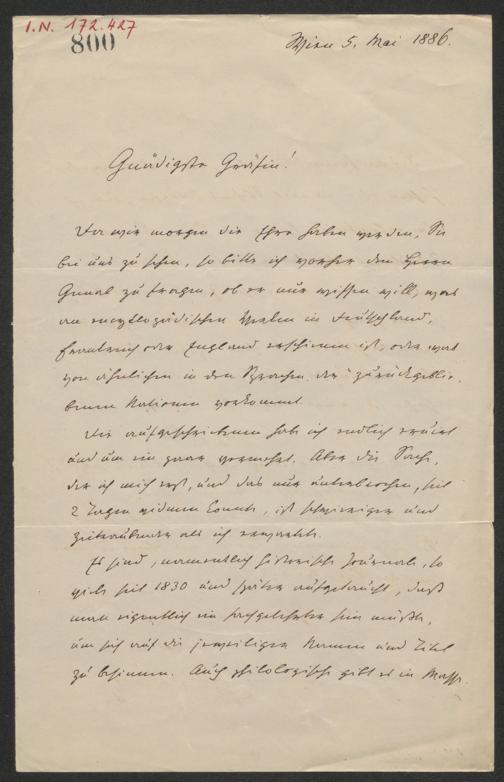 I.N. 172.427
800
Wien 5. Mai 1886.
Gnädigste Gräfin!
Da wir morgen die Ehre haben werden, Sie
bei uns zu sehen, so bitte ich vorher den Herrn
Gemal zu fragen, ob er nur wissen will, was
an encyklopädischen Werken in Deutschland,
Frankreich oder England erschienen ist, oder was
von ähnlichen in den Sprachen der "zurückgeblie-
benen Nationen vorkommt.
Die aufgeschriebenen habe ich endlich
und um ein paar vermehrt. Aber die Sache,
der ich mich erst, und das nur unterbrochen, seit
2 Tagen widmen konnte, ist schwieriger und
zeitraubender als ich erwartete.
Es sind, namentlich historische Journale, so
viele seit 1830 und später aufgetaucht, daß
man eigentlich ein Fachgelehrter sein müßte,
um sich auf die jeweiligen Namen und Titel
zu besinnen. Auch philologische gibt es in Masse.